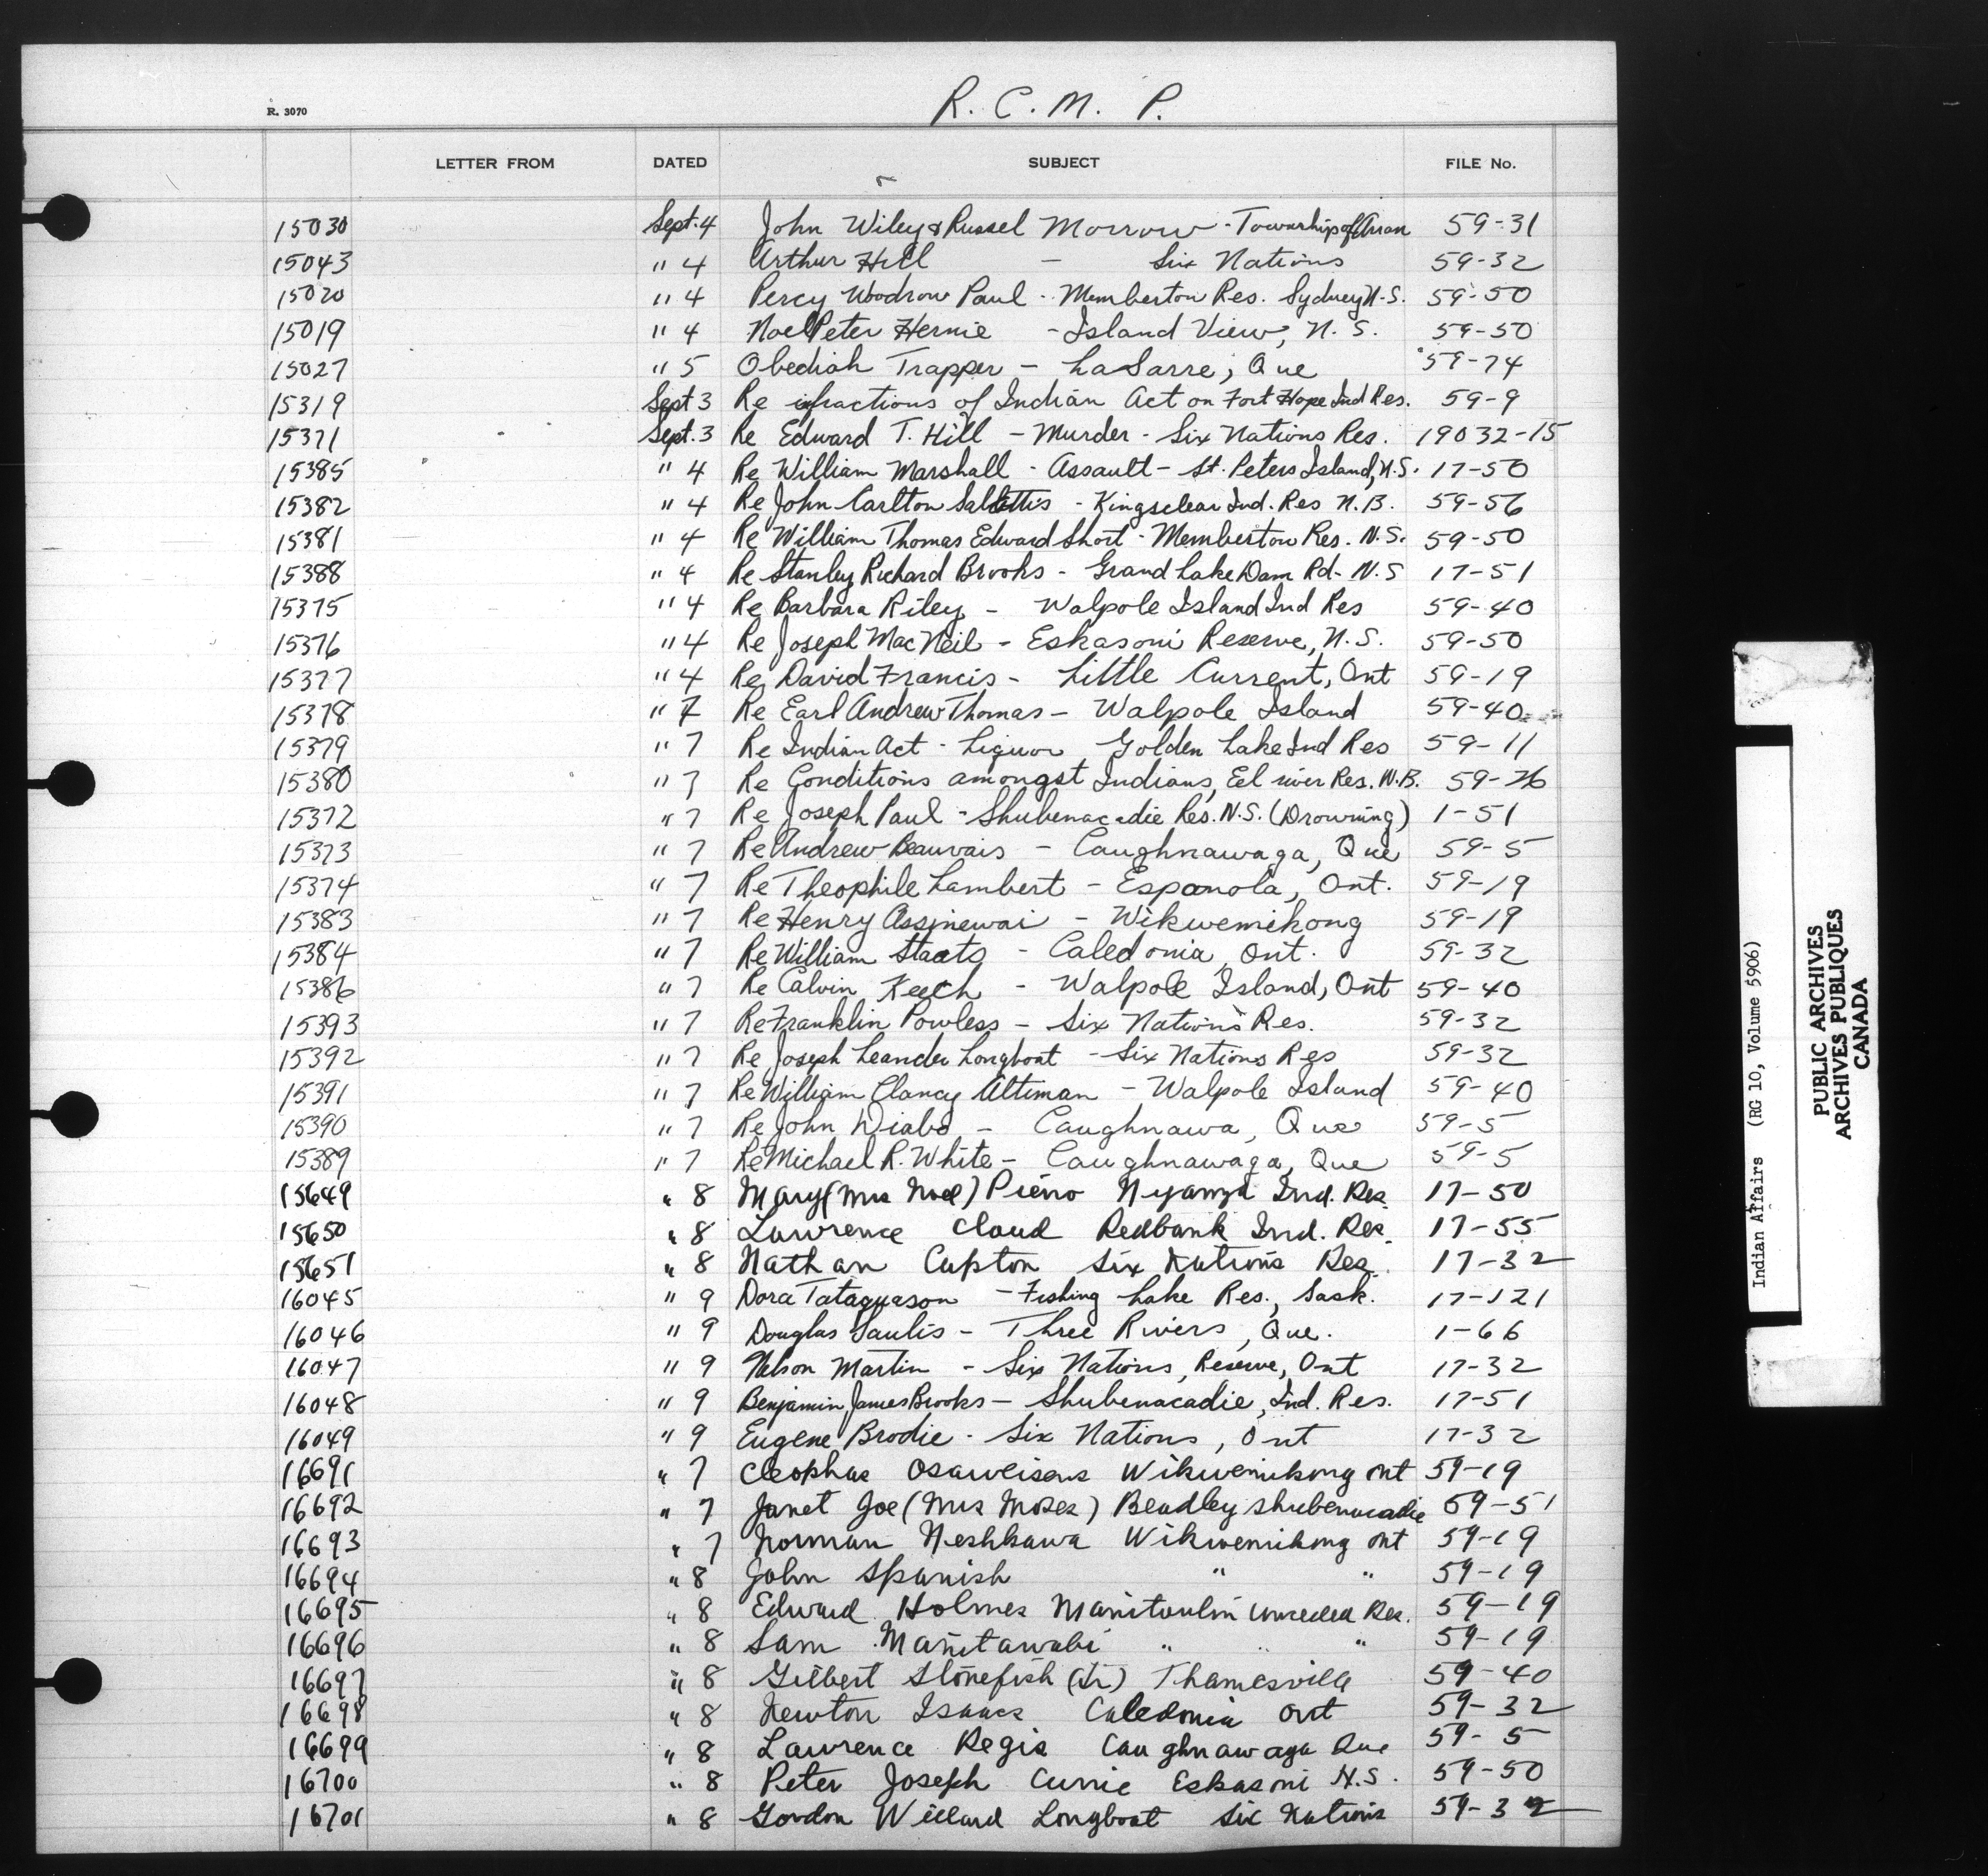 R. C. M. P.
R. 3070
LETTER FROM DATED SUBJECT FILE No.
15030 Sept. 4 John Wiley & Russel Morrow - Township of Arran 59-31
15043 " 4 Arthur Hill - Six Nations 59-32
15020 " 4 Percy Woodrow Paul - Memberton Res. Sydney N.S. 59-50
15019 " 4 Noel Peter Hernie - Island View, N. S. 59-50
15027 " 5 Obediah Trapper - LaSarre, Que 59-74
15319 Sept 3 Re infractions of Indian Act on Fort Hope Ind Res. 59-9
15371 Sept. 3 Re Edward T. Hill - Murder - Six Nations Res. 19032-15
15385 " 4 Re William Marshall - Assault - St. Peters Island, N.S. 17-50
15382 " 4 Re John Carlton - Kingsclear Ind. Res N.B. 59-56
15381 " 4 Re William Thomas Edward Short - Memberton Res. N.S. 59-50
15388 " 4 Re Stanley Richard Brooks - Grand Lake Dam Rd - N.S 17-51
15375 " 4 Re Barbara Riley - Walpole Island Ind Res 59-40
15376 " 4 Re Joseph MacNeil - Eskasoni Reserve, N.S. 59-50
15377 " 4 Re David Francis - Little Current, Ont 59-19
15378 " 7 Re Earl Andrew Thomas - Walpole Island 59-40
15379 " 7 Re Indian Act - Liquor Golden Lake Ind Res 59-11
15380 " 7 Re Conditions amongst Indians, Eel river Res. N.B. 59-76
15372 " 7 Re Joseph Paul - Shubenacadie Res. N.S. (Drowning) 1-51
15373 " 7 Re Andrew Beauvais - Caughnawaga, Que 59-5
15374 " 7 Re Theophile Lambert - Espanola, Ont. 59-19
15383 " 7 Re Henry Assinewai - Wikwemikong 59-19
15384 " 7 Re William Staats - Caledonia, Ont. 59-32
15386 " 7 Re Calvin Keech - Walpole Island, Ont 59-40
15393 " 7 Re Franklin Powless - Six Nations Res. 59-32
15392 " 7 Re Joseph Leander Longboat - Six Nations Res 59-32
15391 " 7 Re William Clancy Altiman - Walpole Island 59-40
15390 " 7 Re John Diabo - Caughnawa, Que 59-5
15389 " 7 Re Michael R. White - Caughnawaga, Que 59-5
15649 " 8 Mary (Mrs Noel) Pierro Nyanza Ind. Res. 17-50
15650 " 8 Lawrence Cloud Redbank Ind. Res. 17-55
15651 " 8 Nathan Cupton Six Nations Res. 17-32
16045 " 9 Dora Tataquason - Fishing Lake Res., Sask. 17-121
16046 " 9 Douglas Saulis - Three Rivers, Que. 1-66
16047 " 9 Nelson Martin - Six Nations, Reserve, Ont 17-32
16048 " 9 Benjamin James Brooks - Shubenacadie, Ind. Res. 17-51
16049 " 9 Eugene Brodie - Six Nations, Ont 17-32
16691 " 7 Cleophas Wikwemikong Ont 59-19
16692 " 7 Janet Joe (Mrs Moses) Beadley Shubenacadie 59-51
16693 " 7 Norman Neshkawa Wikwemikong Ont 59-19
16694 " 8 John Spanish " " 59-19
16695 " 8 Edward Holmes Manitoulin Unceded Res. 59-19
16696 " 8 Sam Manitawabi " " " 59-19
16697 " 8 Gilbert Stonefish (Sr) Thamesville 59-40
16698 " 8 Newton Isaacs Caledonia Ont 59-32
16699 " 8 Lawrence Regis Caughnawaga Que 59-5
16700 " 8 Peter Joseph Currie Eskasoni N.S. 59-50
16701 " 8 Gordon Willard Longboat Six Nations 59-32
Indian Affairs (RG 10, Volume 5906)
PUBLIC ARCHIVES
ARCHIVES PUBLIQUES
CANADA